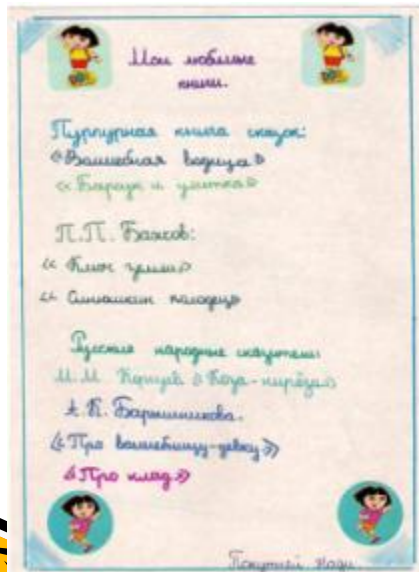 Мои любимые
книги.
Пурпурная книга сказок:
«Волшебная водица»
«Барсук и улитка»
П.П. Бажов:
«Ключ земли»
«Синюшкин колодец»
Русские народные сказители:
М.М. Коргуев «Коза-
А.К. Барышникова.
«Про волшебницу-девку»
«Про клад»
Нади